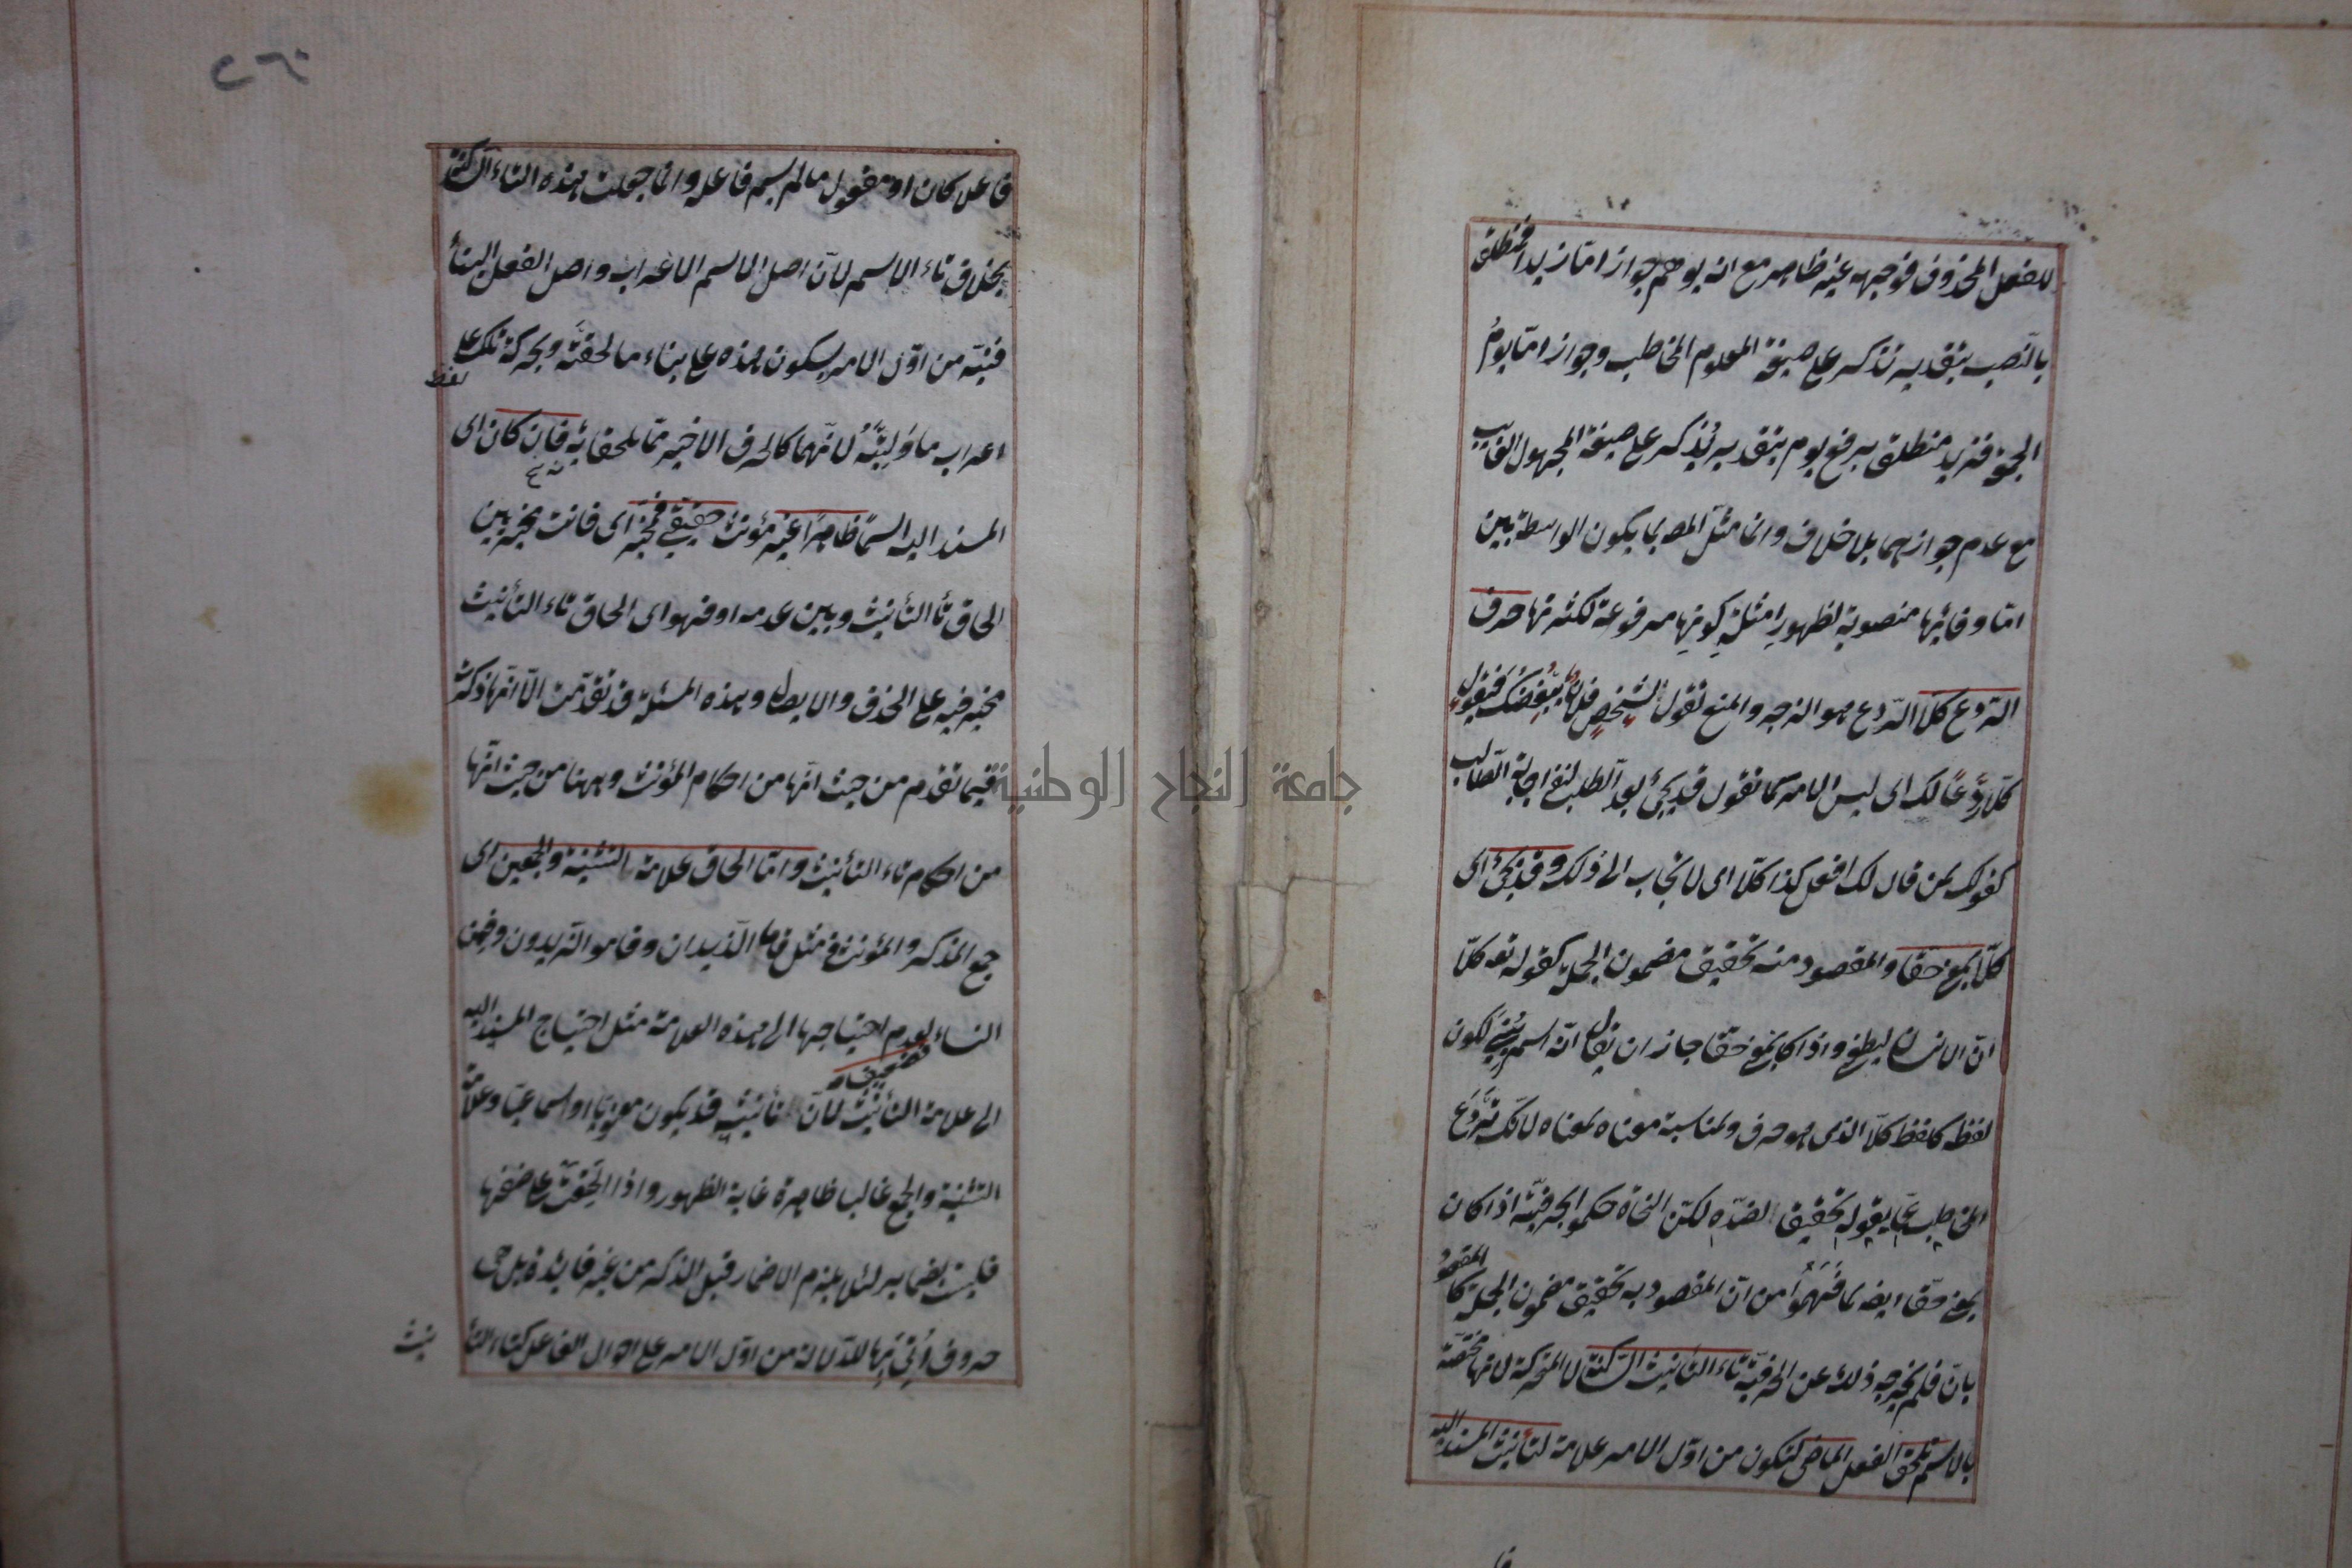 للفعل المحذوف فوجهه غير ظاهر مع انه يوهم جواز امّا زيدا فمنطلق
بالنصب بتقدير تذكر على صيغة المعلوم المخاطب وجواز امّا يومُ
الجمعة فزيد منطلق برفع يوم بتقدير يُذكر على صيغة المجهول الغايب
مع عدم جوازهما بلا خلاف وانما مثل المص بما يكون الواسطة بين
امّا وفائها منصوبة لظهور امثلة كونها مرفوعة لكثرتها حرف
الردع كلّا الردع هو الزجر والمنع تقول لشخص فلانٌ يبغضك فيقول
كلّا ردعًا لك اى ليس الامر كما تقول وقد يجئ بعد الطلب لنفى اجابة الطالب
كقولك لمن قال لك افعل كذا كلّا اى لا يجاب الى ذلك وقد يجئ اى
كلّا بمعنى حقا والمقصود منه تحقيق مضمون الجملة كقوله تع كلّا
انّ الانسان ليطغى واذا كان بمعنى حقّا جاز ان يقال انّه اسم بُنى لكون
لفظه كلفظ كلّا الذى هو حرف ولمناسبة معناه لمعناه لانّك تردع
المخاطب عمّا يقوله تحقيقا لضدّه لكنّ النحاة حكموا بحرفيّته اذا كان
بمعنى حقّا ايضا لما فهموا من انّ المقصود به تحقيق مضمون الجملة كالمقصود
بانّ فلم يخرجه ذلك عن الحرفيّة تاء التأنيث الساكنة لا المتحركة لانها مختصّة
بالاسم تلحق الفعل الماضى لتكون من اوّل الامر علامة لتأنيث المسند اليه
فا
٢٦٠
فاعلا كان او مفعول ما لم يسم فاعله وانما جعلت هذه التاء ساكنة
بخلاف تاء الاسم لانّ اصل الاسم الاعراب واصل الفعل البناء
فنبّه من اوّل الامر بسكون هذه على بناء ما لحقته وبحركة تلك على
اعراب ما وليته لانّهما كالحرف الاخير ممّا يلحقانه فان كان اى
المسند اليه اسمًا ظاهرًا غير مؤنث حقيقى فمخيّر اى فانت مخيّر بين
الحاق تاء التأنيث وبين عدمه او فهو اى الحاق تاء التأنيث
مخير فيه على الحذف والايصال وهذه المسئلة قد تقدّمت الّا انها ذكرت
فيما تقدم من حيث انّها من احكام المؤنث وههنا من حيث انّها
من احكام تاء التأنيث وامّا الحاق علامة التثنية والجمعين اى
جمع المذكر والمؤنث فى مثل قاما الزيدان وقاموا الزيدون وقمن
النساء فضعيف لعدم احتياجها الى هذه العلامة مثل احتياج المسند اليه
الى علامة التأنيث لانّ تأنيثه قد يكون معنويّا او سماعيّا وعلامة
التثنية والجمع غالبا ظاهرة غاية الظهور واذا الحقت على ضعفها
فليست بضماير لئلا يلزم الاضمار قبل الذكر من غير فايدة بل هى
حروف اُتى بها للدّلالة من اوّل الامر على احوال الفاعل كتاء التأ
نيث
جامعة النجاح الوطنية